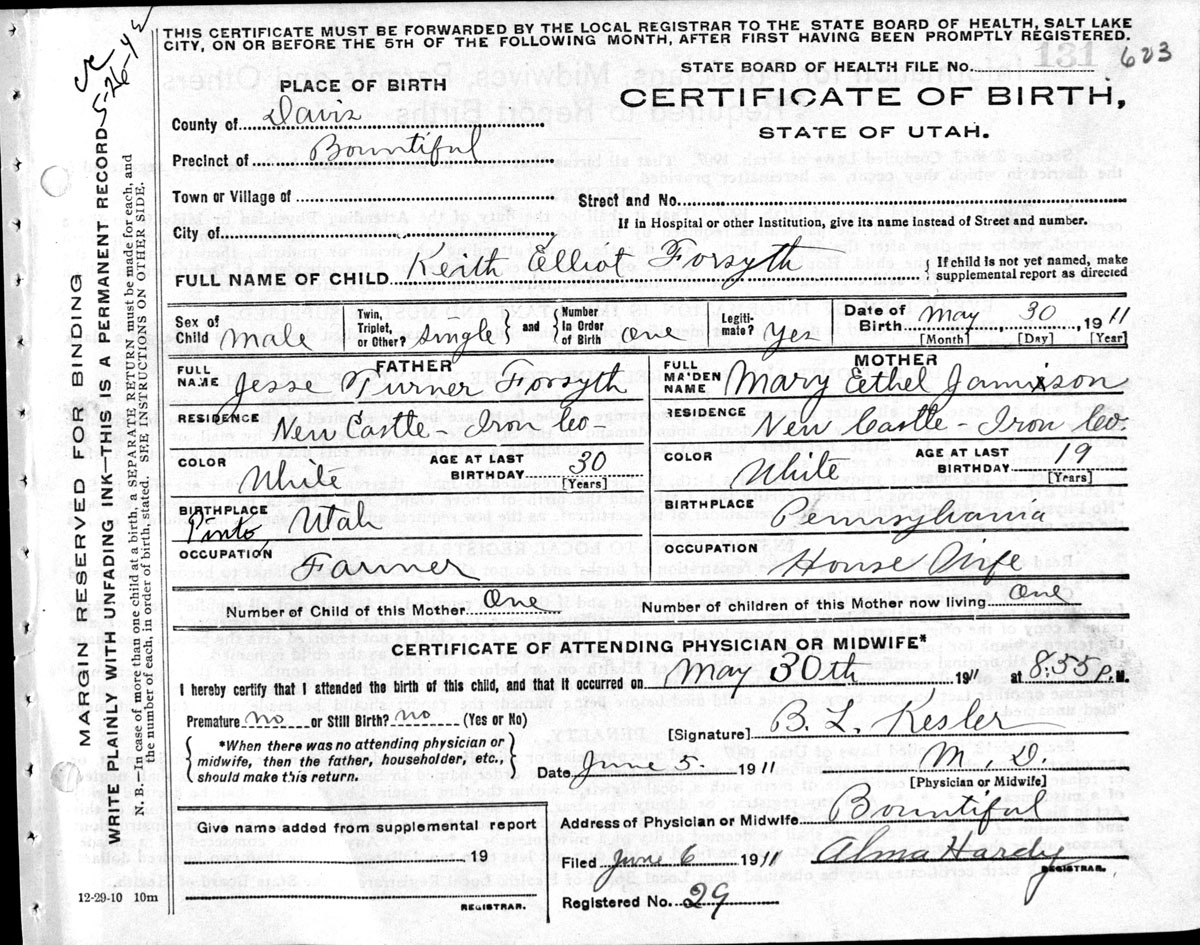 THIS CERTIFICATE MUST BE FORWARDED BY THE LOCAL REGISTRAR TO THE STATE BOARD OF HEALTH, SALT LAKE
CITY, ON OR BEFORE THE 5TH OF THE FOLLOWING MONTH, AFTER FIRST HAVING BEEN PROMPTLY REGISTERED.
131
STATE BOARD OF HEALTH FILE NO. 603
PLACE OF BIRTH
CERTIFICATE OF BIRTH,
STATE OF UTAH.
County of Davis
Precinct of Bountiful
Town or Village of
Street and No.
City of
If in Hospital or other institution, give its name instead of Street and number.
FULL NAME OF CHILD Keith Elliot Forsyth { If child is not yet named, make
supplemental report as directed
Sex of Child Male
Twin, Triplet, or Other? Single } and { Number In Order of Birth One
Legitimate? Yes
Date of Birth May, 30, 1911
[Month] [Day] [Year]
FATHER
FULL NAME Jesse Turner Forsyth
RESIDENCE New Castle - Iron Co-
COLOR White
AGE AT LAST BIRTHDAY 30
[Years]
BIRTHPLACE Pinto, Utah
OCCUPATION Farmer
MOTHER
FULL MAIDEN NAME Mary Ethel Jamixson
RESIDENCE New Castle - Iron Co-
COLOR White
AGE AT LAST BIRTHDAY 19
[Years]
BIRTHPLACE Pennsylvania
OCCUPATION House Wife
Number of Child of this Mother One
Number of children of this Mother now living One
CERTIFICATE OF ATTENDING PHYSICIAN OR MIDWIFE*
I hereby certify that I attended the birth of this child, and that it occurred on May 30th, 1911 at 8.55 P. M.
Premature no or Still Birth? no (Yes or No)
[Signature] B. L. Kesler
{ *When there was no attending physician or
midwife, then the father, householder, etc.,
should make this return. }
Date June 5. 1911
M. D.
[Physician or Midwife]
Give name added from supplemental report
19
REGISTRAR.
Address of Physician or Midwife. Bountiful
Filed June 6 1911 Alma Hardy
REGISTRAR.
Registered No. 29
12-29-10 10m
MARGIN RESERVED FOR BINDING
WRITE PLAINLY WITH UNFADING INK—THIS IS A PERMANENT RECORD
N. B.—In case of more than one child at a birth, a SEPARATE RETURN must be made for each, and
the number of each, in order of birth, stated. SEE INSTRUCTIONS ON OTHER SIDE.
5-26-42